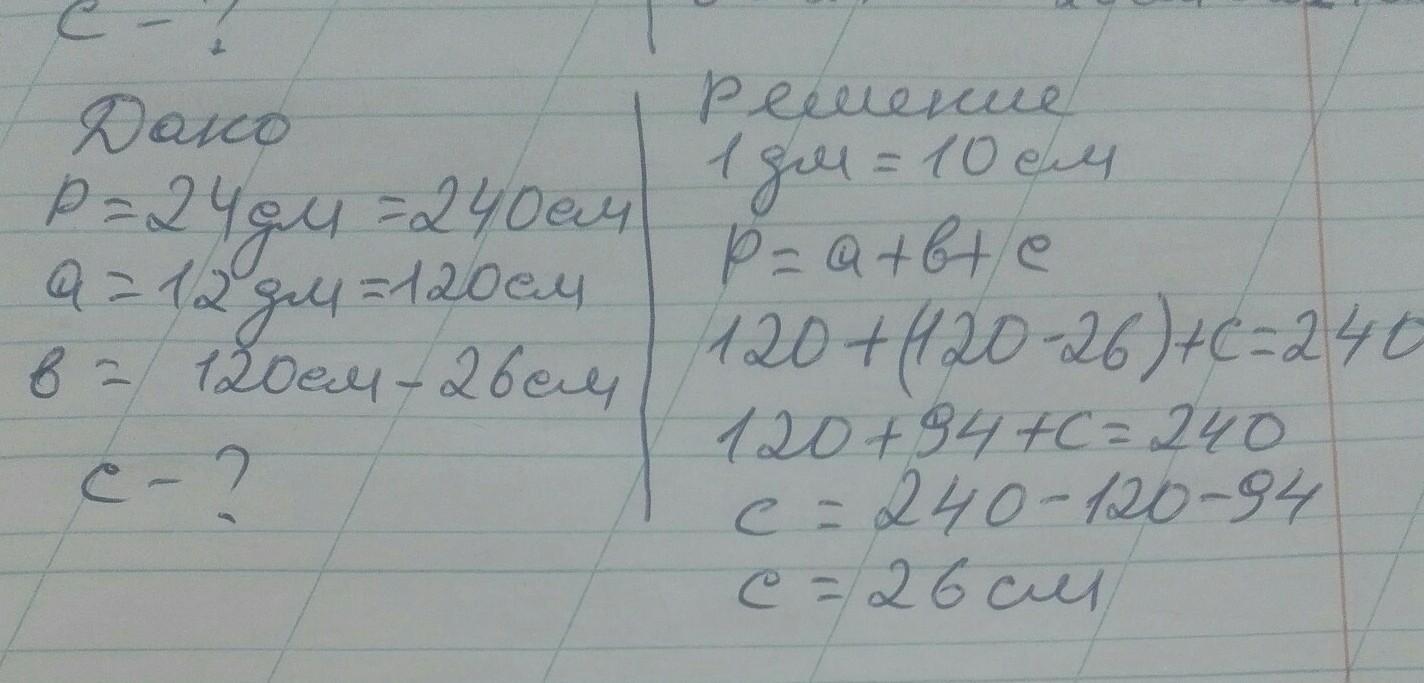 с - ?
Дано
P = 24дм = 240см
a = 12дм = 120см
в = 120см - 26см
с - ?
Решение
1 дм = 10 см
P = a + в + с
120 + (120 - 26) + с = 240
120 + 94 + с = 240
с = 240 - 120 - 94
с = 26 см